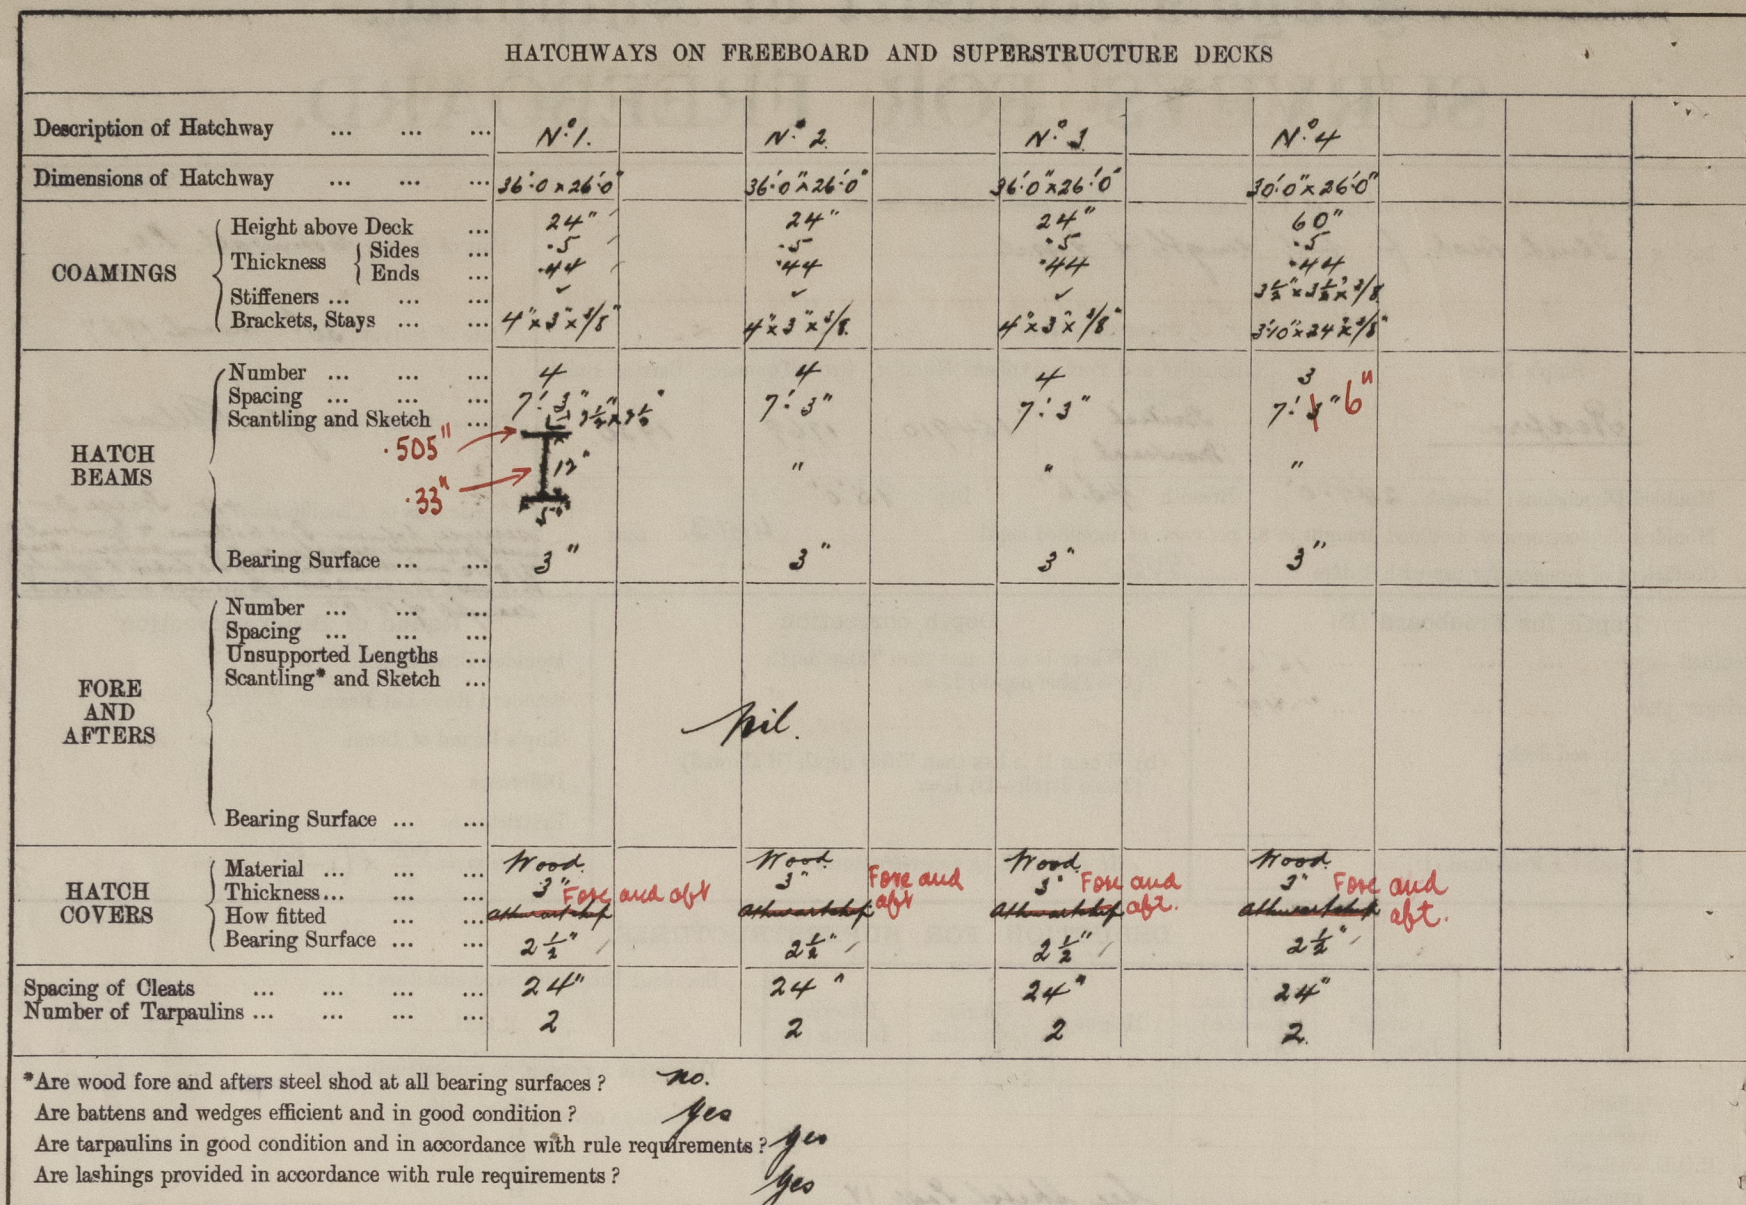 HATCHWAYS ON FREEBOARD AND SUPERSTRUCTURE DECKS
Description of Hatchway ... ... ... Nº 1. Nº 2. Nº 3 Nº 4
Dimensions of Hatchway ... ... ... 36'.0 x 26'.0" 36'.0" x 26'.0" 36'.0" x 26'.0" 30'.0" x 26'.0"
COAMINGS
Height above Deck ... 24" 24" 24" 60"
Thickness { Sides ... .5 .5 .5 .5
Ends ... .44 .44 .44 .44
Stiffeners ... ... ... ✓ ✓ ✓ 3½" x 3½" x 3/8
Brackets, Stays ... ... 4" x 3" x 3/8" 4" x 3" x 3/8. 4" x 3" x 3/8" 3'.10" x 24" x 3/8"
HATCH BEAMS
Number ... ... ... 4 4 4 3
Spacing ... ... ... 7'. 3" 7'. 3" 7'. 3" 7'. 3" 6"
Scantling and Sketch ... 3½" x 3½"
.505"
12" " " "
.33"
5"
Bearing Surface ... ... 3" 3" 3" 3"
FORE AND AFTERS
Number ... ... ...
Spacing ... ... ...
Unsupported Lengths ...
Scantling* and Sketch ...
Nil.
Bearing Surface ... ...
HATCH COVERS
Material ... ... ... Wood. Wood. Wood. Wood.
Thickness ... ... ... 3" 3" 3" 3"
How fitted ... ... Athwartship Fore and aft Athwartship Fore and aft Athwartship Fore and aft. Athwartship Fore and aft.
Bearing Surface ... ... 2½" 2½" 2½" 2½"
Spacing of Cleats ... ... ... ... 24" 24" 24" 24"
Number of Tarpaulins ... ... ... ... 2 2 2 2.
*Are wood fore and afters steel shod at all bearing surfaces ? no.
Are battens and wedges efficient and in good condition ? yes
Are tarpaulins in good condition and in accordance with rule requirements ? yes
Are lashings provided in accordance with rule requirements ? yes